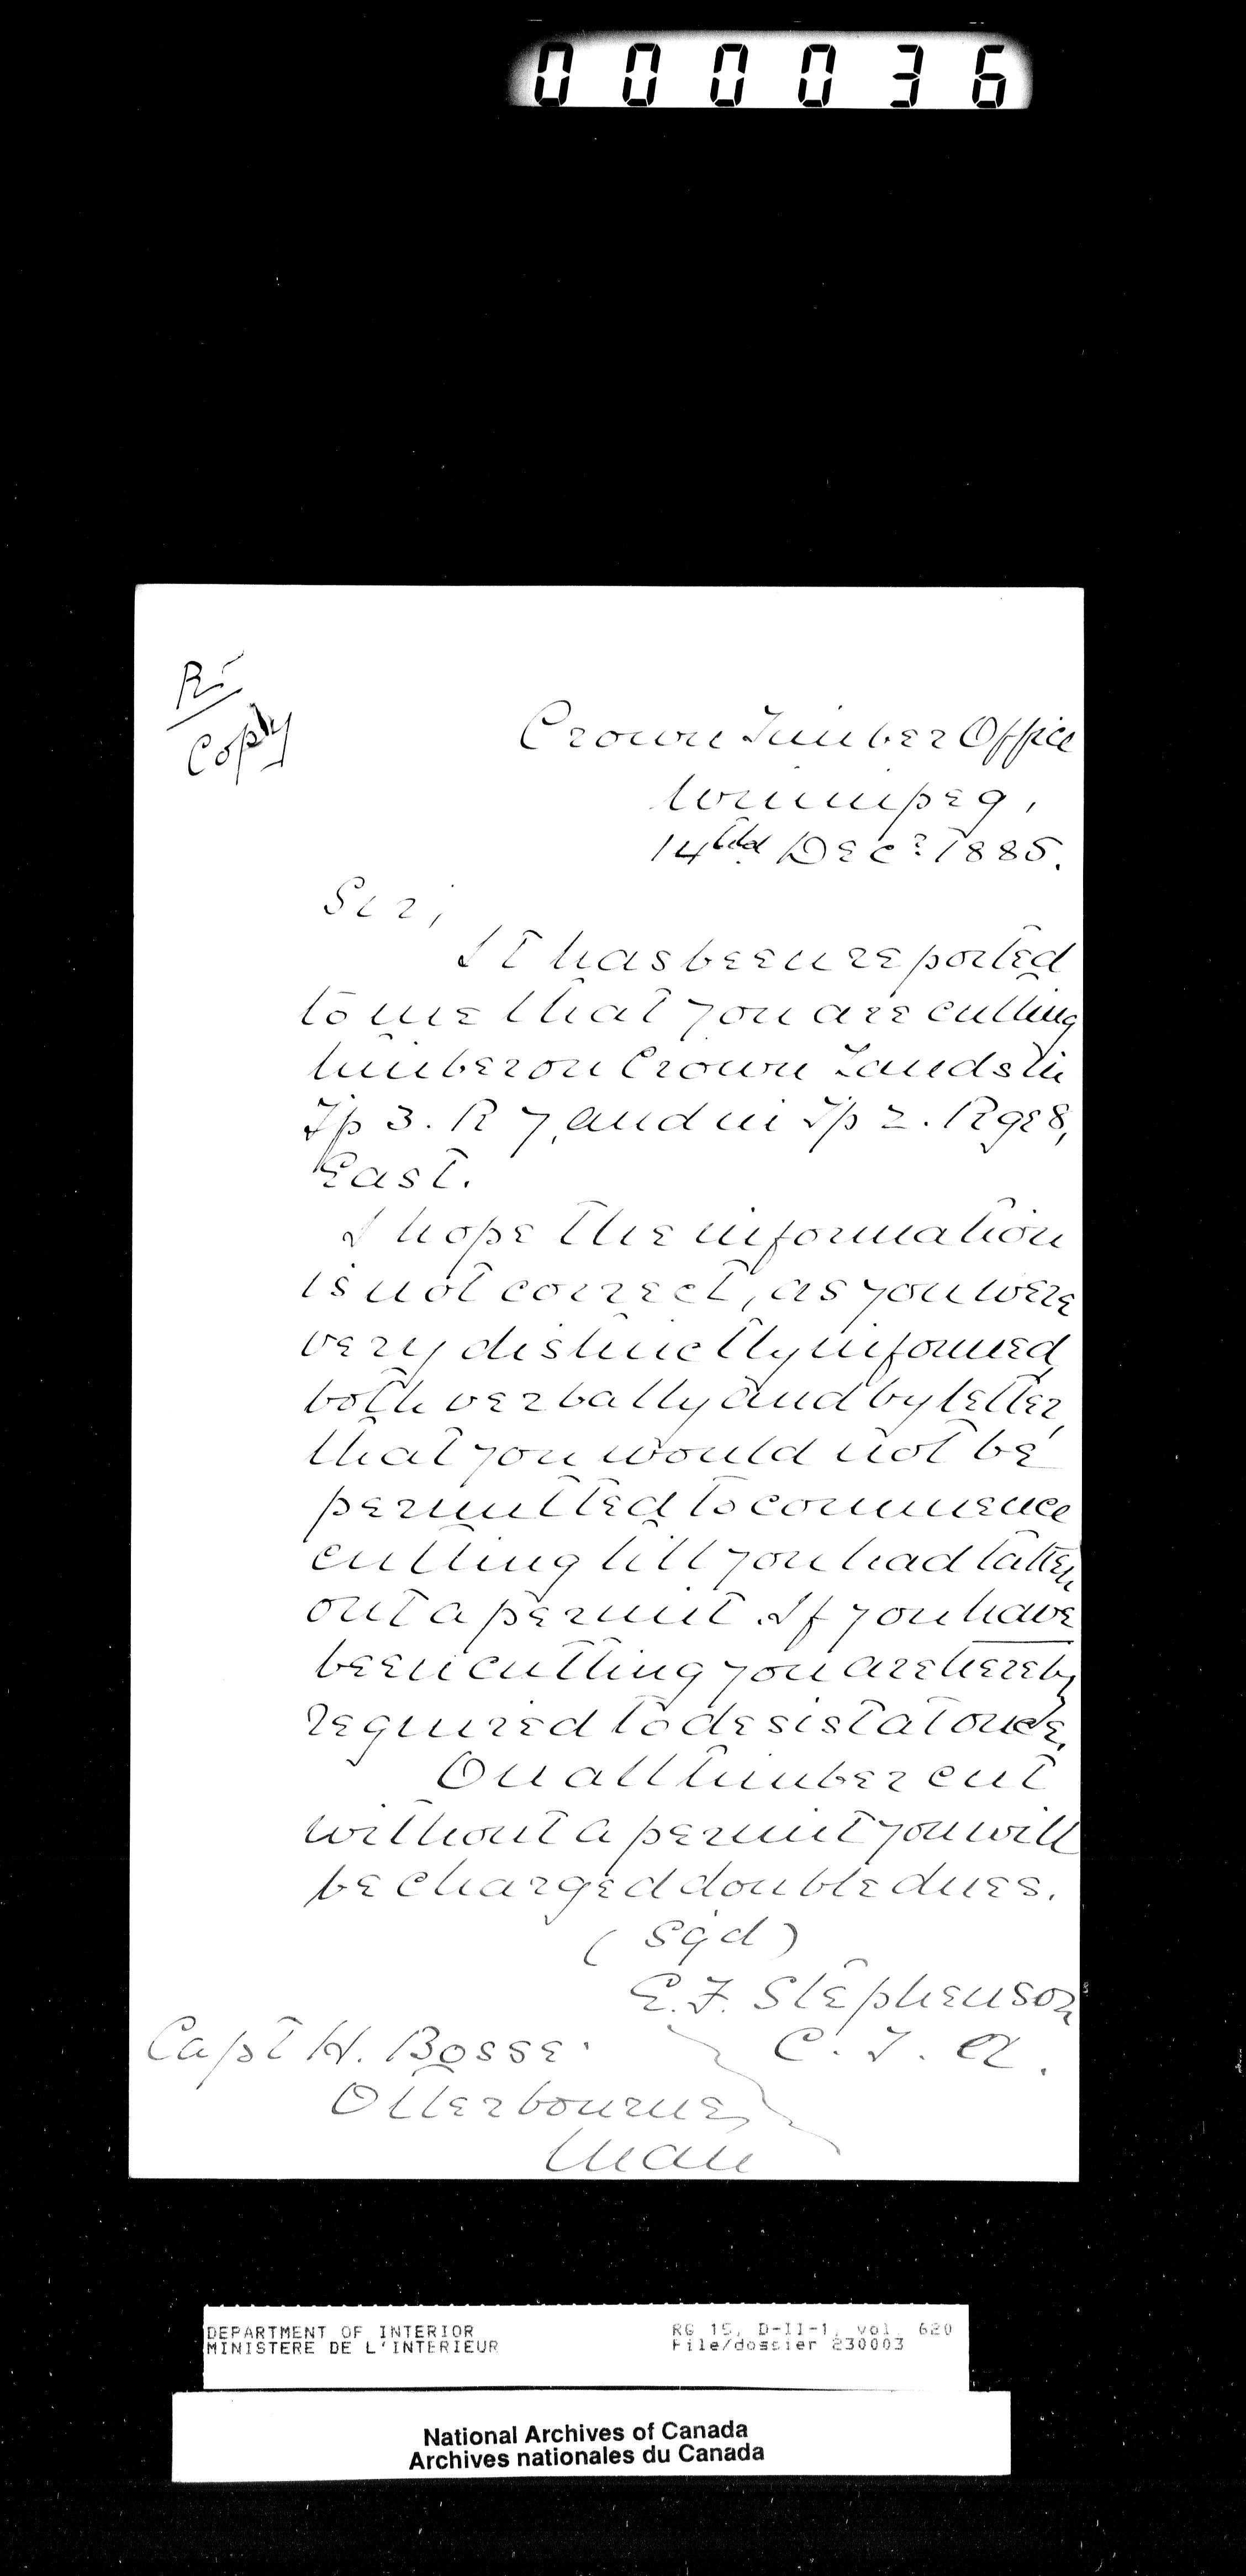 000036
R
Copy
Crown Timber Office
Winnipeg,
14th Decr 1885.
Sir,
It has been reported
to me that you are cutting
timber on Crown Lands in
Tp 3. R 7, and in Tp 2. Rge 8,
East.
I hope the information
is not correct, as you were
very distinctly informed,
both verbally and by letter,
that you would not be
permitted to commence
cutting till you had taken
out a permit. If you have
been cutting you are hereby
required to desist at once.
On all timber cut
without a permit you will
be charged double dues.
(Sgd)
E. F. Stephenson
C. T. A.
Capt H. Bosse.
Otterbourne,
Man
DEPARTMENT OF INTERIOR RG 15, D-II-1, vol. 620
MINISTERE DE L'INTERIEUR File/dossier 230003
National Archives of Canada
Archives nationales du Canada